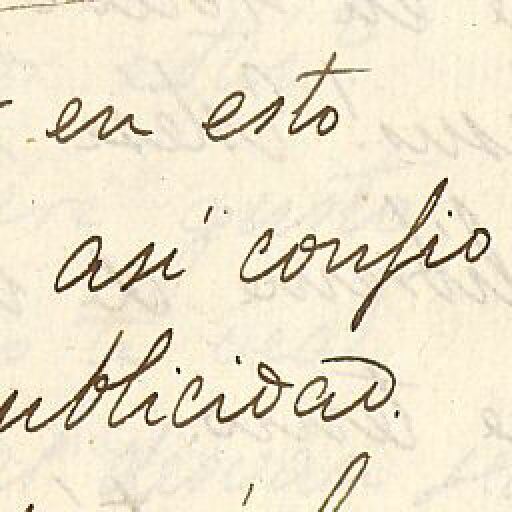 en esto
así confio
ublicidad.